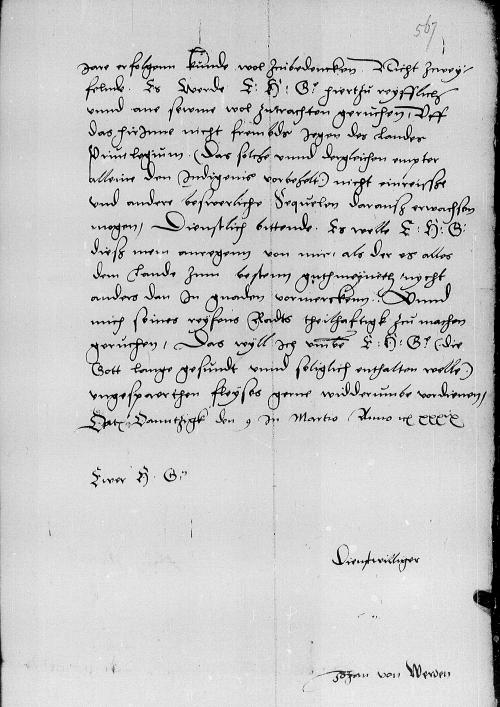 567
Jare erfolgenn kunde wol zubedencken. Nicht zwey-
felnde. Es werde E. H. G. hierthu reyfflich
vnnd ane sewme wol zutrachten geruchen, Vff
das hirInne nicht frembds Jegen des Landes
Priuilegium (Das solche vnnd dergleichen empter
alleine den Indigenis vorbehelt) nicht einreisse
vnd andere beswerliche Sequelen darauß erwachsen
mogen, Dienstlich bittende. Es welle E. H. G.
dieß mein anregenn von mir, als der es alles
dem Lande zum bestenn guthmeyneth, nycht
anders dan in gnaden vormerckenn. Vnnd
mich seines reyfens Radts theilhafftigk zu machen
geruchen, Das wyll ich vmbe E. H. G. (die
Gott lange gesundt vnnd seliglich enthalten welle)
vngesparthen fleyses gerne widderumbe vordienen,
Datum Dantzigk den 9 in Martio Anno XXXXIX
Ewer H. G.
Dienstwilliger
Johan von Werden